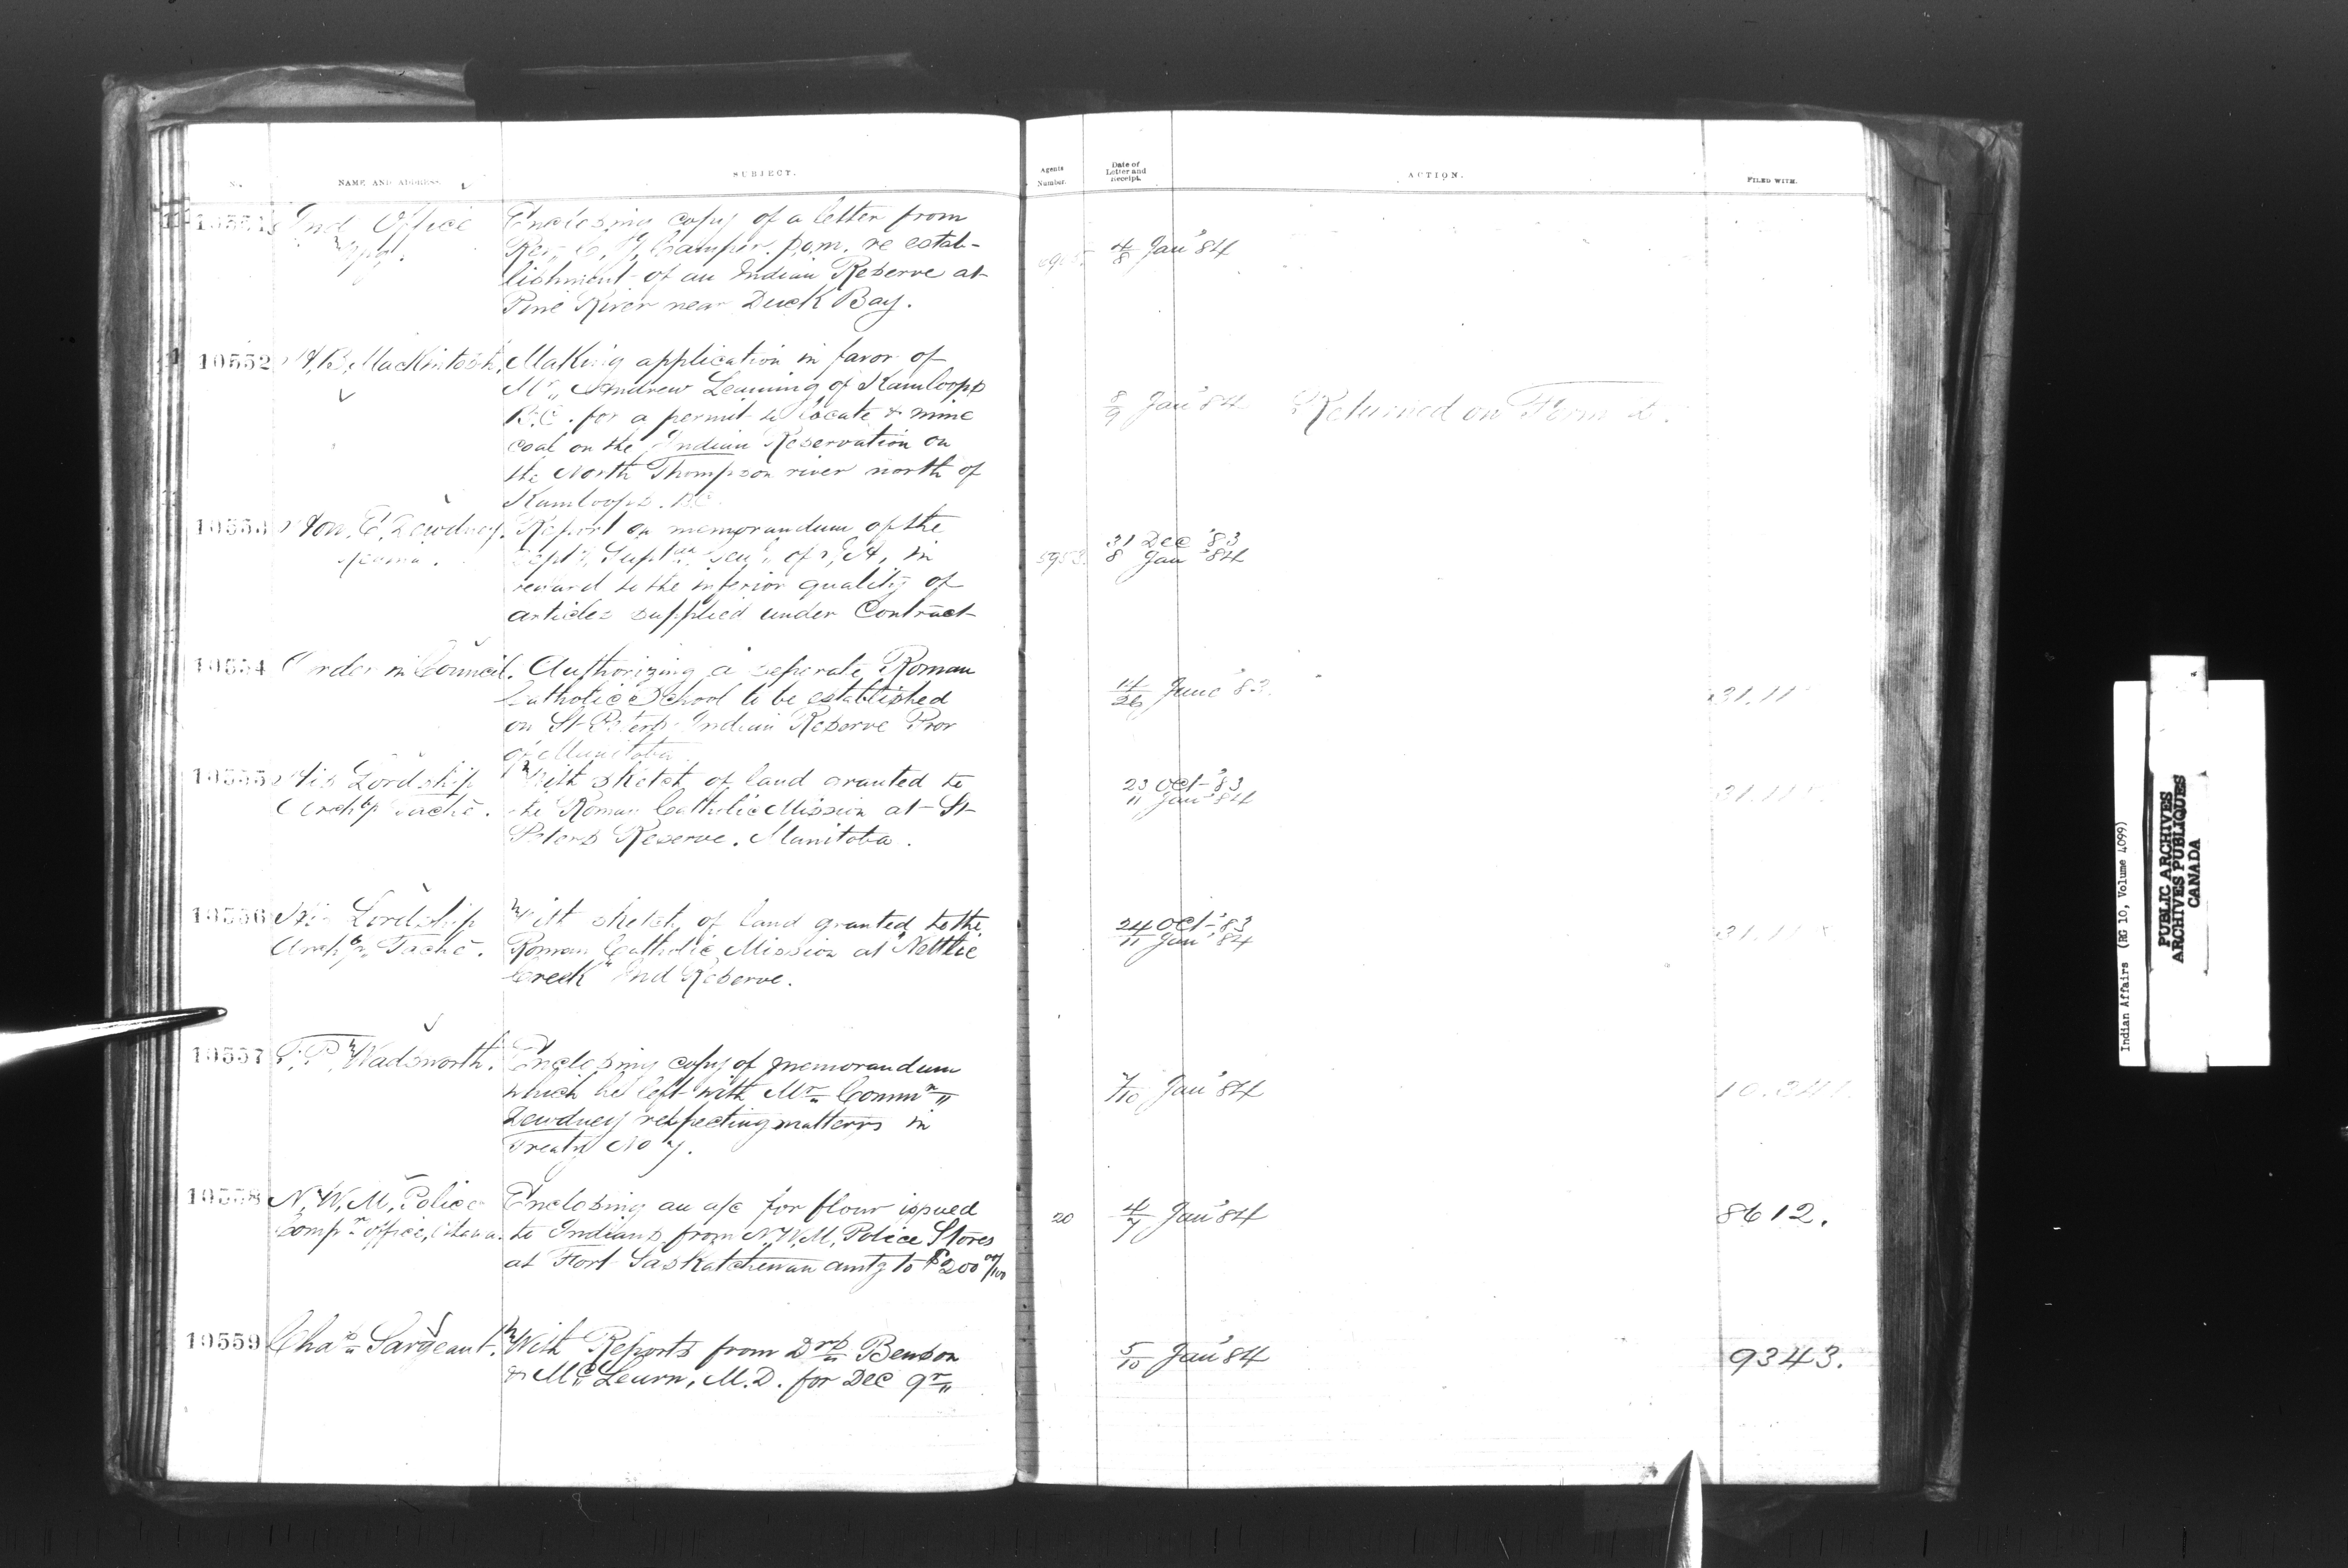 No.
NAME AND ADDRESS.
SUBJECT.
Agents
Number.
Date of
Letter and
Receipt.
ACTION.
FILED WITH.
10551
Ind Office
Wpg.
Enclosing copy of a letter from
Rev. C. J. Camper. P.O.M. re estab-
lishment of an Indian Reserve at
Pine River near Duck Bay.
4/8 Jan'84
10552
H. B. Mackintosh,
Making application in favor of
Mr. Andrew Leaming of Kamloops
B.C. for a permit to locate & mine
coal on the Indian Reservation on
the North Thompson river north of
Kamloops. B.C.
8/9 Jan'84
Returned on Form
10553
Hon. E. Dewdney.
Report on memorandum of the
in
regard to the inferior quality of
articles supplied under Contract
5953.
31 Dec '83
8 Jan '84
10554
Order in Council.
Authorizing a seperate Roman
Catholic School to be established
on St Peters Indian Reserve Prov
of Manitoba
14/26 June '83.
10555
His Lordship
Archbp. Taché.
With sketch of land granted to
the Roman Catholic Mission at St
Peters Reserve. Manitoba.
23 Oct '83
11 Jan '84
10556
His Lordship
Archbp. Taché.
With sketch of land granted to the
Roman Catholic Mission at "Nettlie
Creek" Ind Reserve.
24 Oct '83
11 Jan '84
10557
T. P. Wadsworth.
Enclosing copy of memorandum
which he left with Mr. Commr.
Dewdney respecting matters in
Treaty No 7.
7/10 Jan'84
10.241
10558
N. W. M. Police
Compr. Office, Ottawa.
Enclosing an a/c for flour issued
to Indians from N.W.M. Police Stores
at Fort Saskatchewan amtg to $200 00/100
20
4/7 Jan'84
8612.
10559
Chas. Sargeant.
With Reports from Drs. Benson
& McLeurn, M.D. for Dec qr.
5/10 Jan'84
9343.
Indian Affairs (RG 10, Volume 4099)
PUBLIC ARCHIVES
ARCHIVES PUBLIQUES
CANADA